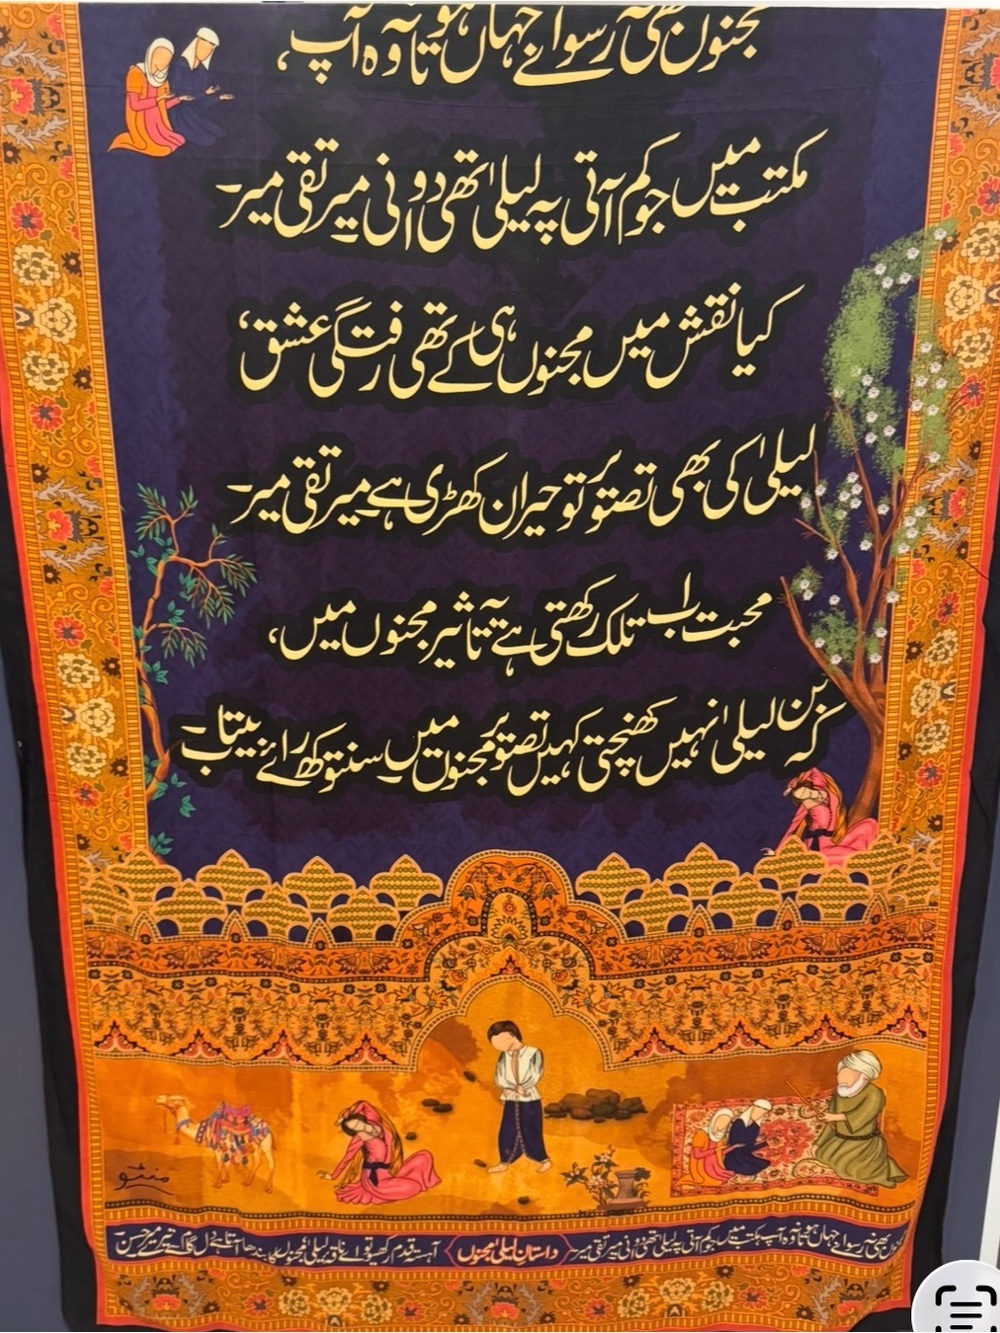 مجنوں بھی نہ رسوائے جہاں ہوتا نہ وہ آپ،
مکتب میں جو کم آتی پہ لیلیٰ تھی دوانی میر تقی میرؔ
کیا نقش میں مجنوں ہی کے تھی رفتگی عشق،
لیلیٰ کی بھی تصویر تو حیران کھڑی ہے میر تقی میرؔ
محبت اب تلک رکھتی ہے یہ تاثیر مجنوں میں،
کہ بن لیلیٰ نہیں کھنچتی کہیں تصویر مجنوں میں سنتوکھ رائے بیتابؔ
منٹو
مجنوں بھی نہ رسوائے جہاں ہوتا نہ وہ آپ مکتب میں جو کم آتی پہ لیلیٰ تھی دوانی میر تقی میرؔ داستانِ لیلیٰ مجنوں آہستہ قدم رکھیو تو اے ناقۂ لیلیٰ مجنوں کا بندھا آتا ہے دل گا تیرے میر حسنؔ